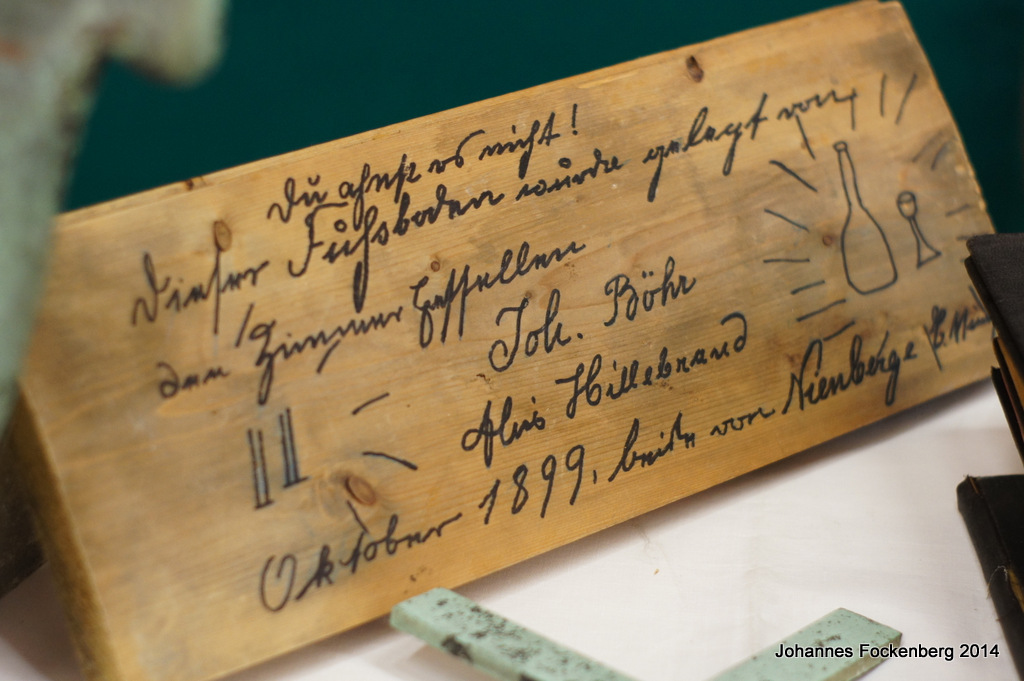 Du ahnst es nicht!
Dieser Fußboden wurde gelegt von
den Zimmergesellen
Joh. Böhr
Alois Hillebrand
Oktober 1899, beide von Nienberge b. Mün
Johannes Fockenberg 2014